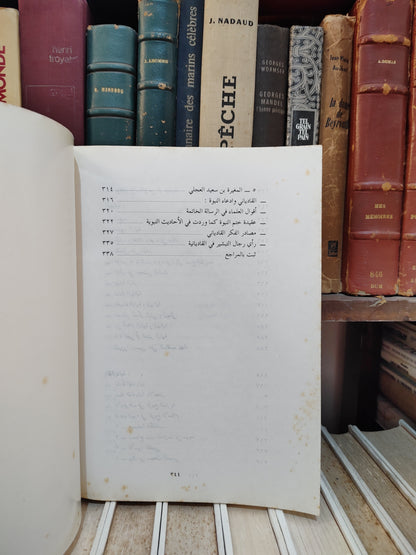 MONDE
henri
troyat
J. NADAUD
PÊCHE
naire des marins célèbres
GEORGES
WORMSER
GEORGES
MANDEL
TEL
GRAIN TEL
PAIN
la
de
Beyrou
A. DUMAS
MES
MÉMOIRES
846
DUM
٥ — المغيرة بن سعيد العجلي ٣١٤
القادياني وادعاء النبوة : ٣١٦
أقوال العلماء في الرسالة الخاتمة ٣٢٠
عقيدة ختم النبوة كما وردت في الأحاديث النبوية ٣٢٢
مصادر الفكر القادياني ٣٢٧
رأي رجال التبشير في القاديانية ٣٣٥
ثبت بالمراجع ٣٣٨
٣٤٤